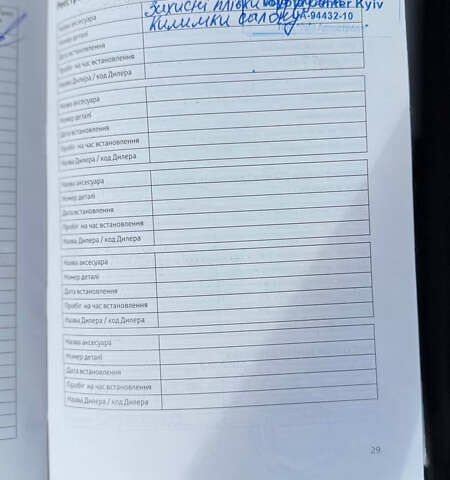 Реєстр
Захисні плівки
Kyiv
Назва аксесуара
Килимки салону
UA-94432-10
Номер деталі
Дата встановлення
Пробіг на час встановлення
Назва Дилера / код Дилера
Назва аксесуара
Номер деталі
Дата встановлення
Пробіг на час встановлення
Назва Дилера / код Дилера
Назва аксесуара
Номер деталі
Дата встановлення
Пробіг на час встановлення
Назва Дилера / код Дилера
Назва аксесуара
Номер деталі
Дата встановлення
Пробіг на час встановлення
Назва Дилера / код Дилера
Назва аксесуара
Номер деталі
Дата встановлення
Пробіг на час встановлення
Назва Дилера / код Дилера
29